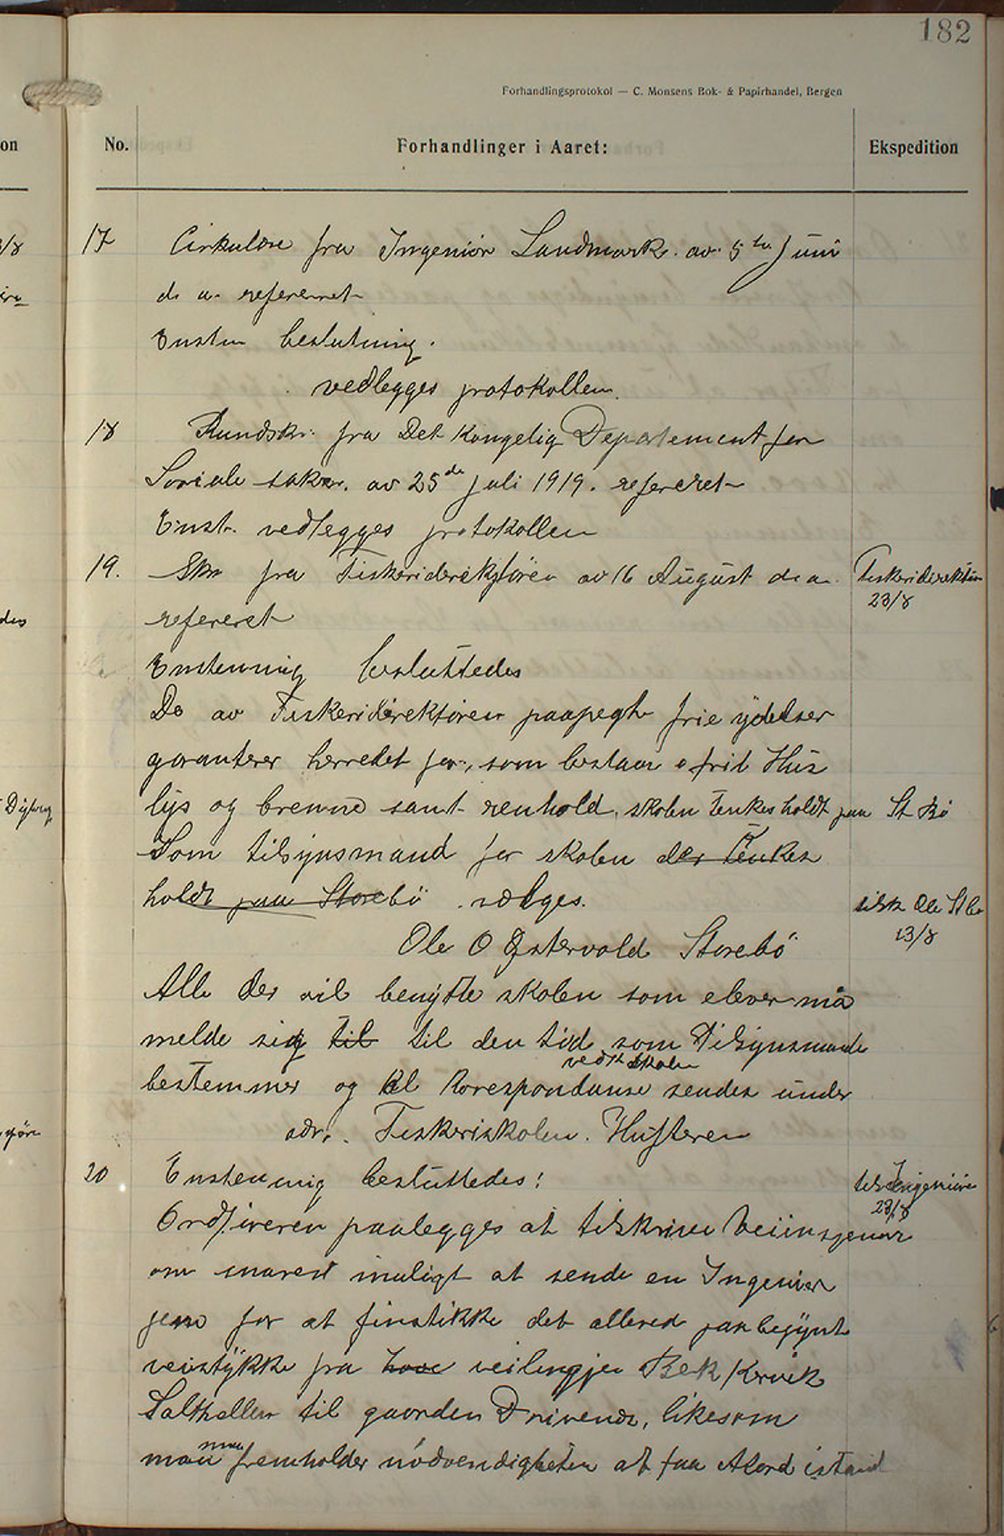 182
Forhandlingsprotokol — C. Monsens Bok- & Papirhandel, Bergen
No. Forhandlinger i Aaret: Ekspedition
17 Cirkulære fra Ingeniör Landmark. av 5te Juni
d. a. refereret
Enstem beslutning.
vedlegges protokollen.
18 Rundskr. fra Det Kongelig Departement for
Sociale saker. av 25de juli 1919. refereret
Enst. vedlegges protokollen
19. Skr fra Fiskeridirektören av 16 August d. a. Fiskeridirektör
23/8
refereret
Enstemmig besluttedes
De av Fiskeridirektören paapegte frie ydelser
garanterer herredet for, som bestaar i frit Hus
lys og brenne samt renhold. skolen tenkes holdt paa St Bö
Som tilsynsmand for skolen der tenkes
holdt paa Storebö velges.
tilsk Ole St bö
23/8
Ole O Østervold Storebö
Alle der vil benytte skolen som elever må
melde sig til til den tid som Tilsynsmand
vedk skolen
bestemmer og al Korespondanse sendes under
adr. Fiskeriskolen. Hufteren
20 Enstemmig besluttedes: tilsk Ingeniöre
23/8
Ordföreren paalegges at tilskrive Veiinsjenör
om snarest muligt at sende en Ingeniör
for at finstikke det allerede paabegynt
veistykke fra veilengjer Bekkervik
Salthellen til gaarden Drivenes, likesom
maa
man fremholder nödvendigheten at faa istand